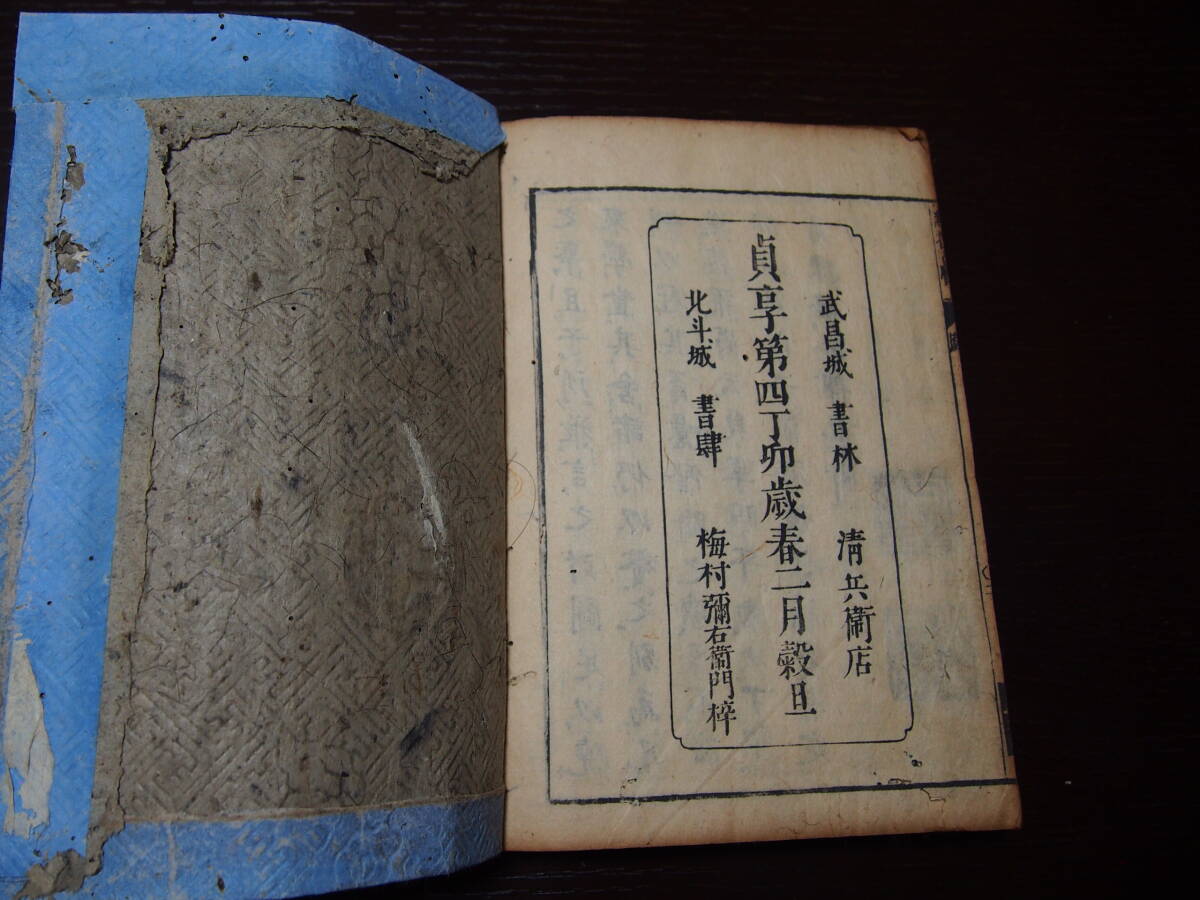 武昌城 書林 清兵衛店
貞享第四丁卯歳春二月穀旦
北斗城 書肆 梅村彌右衛門梓